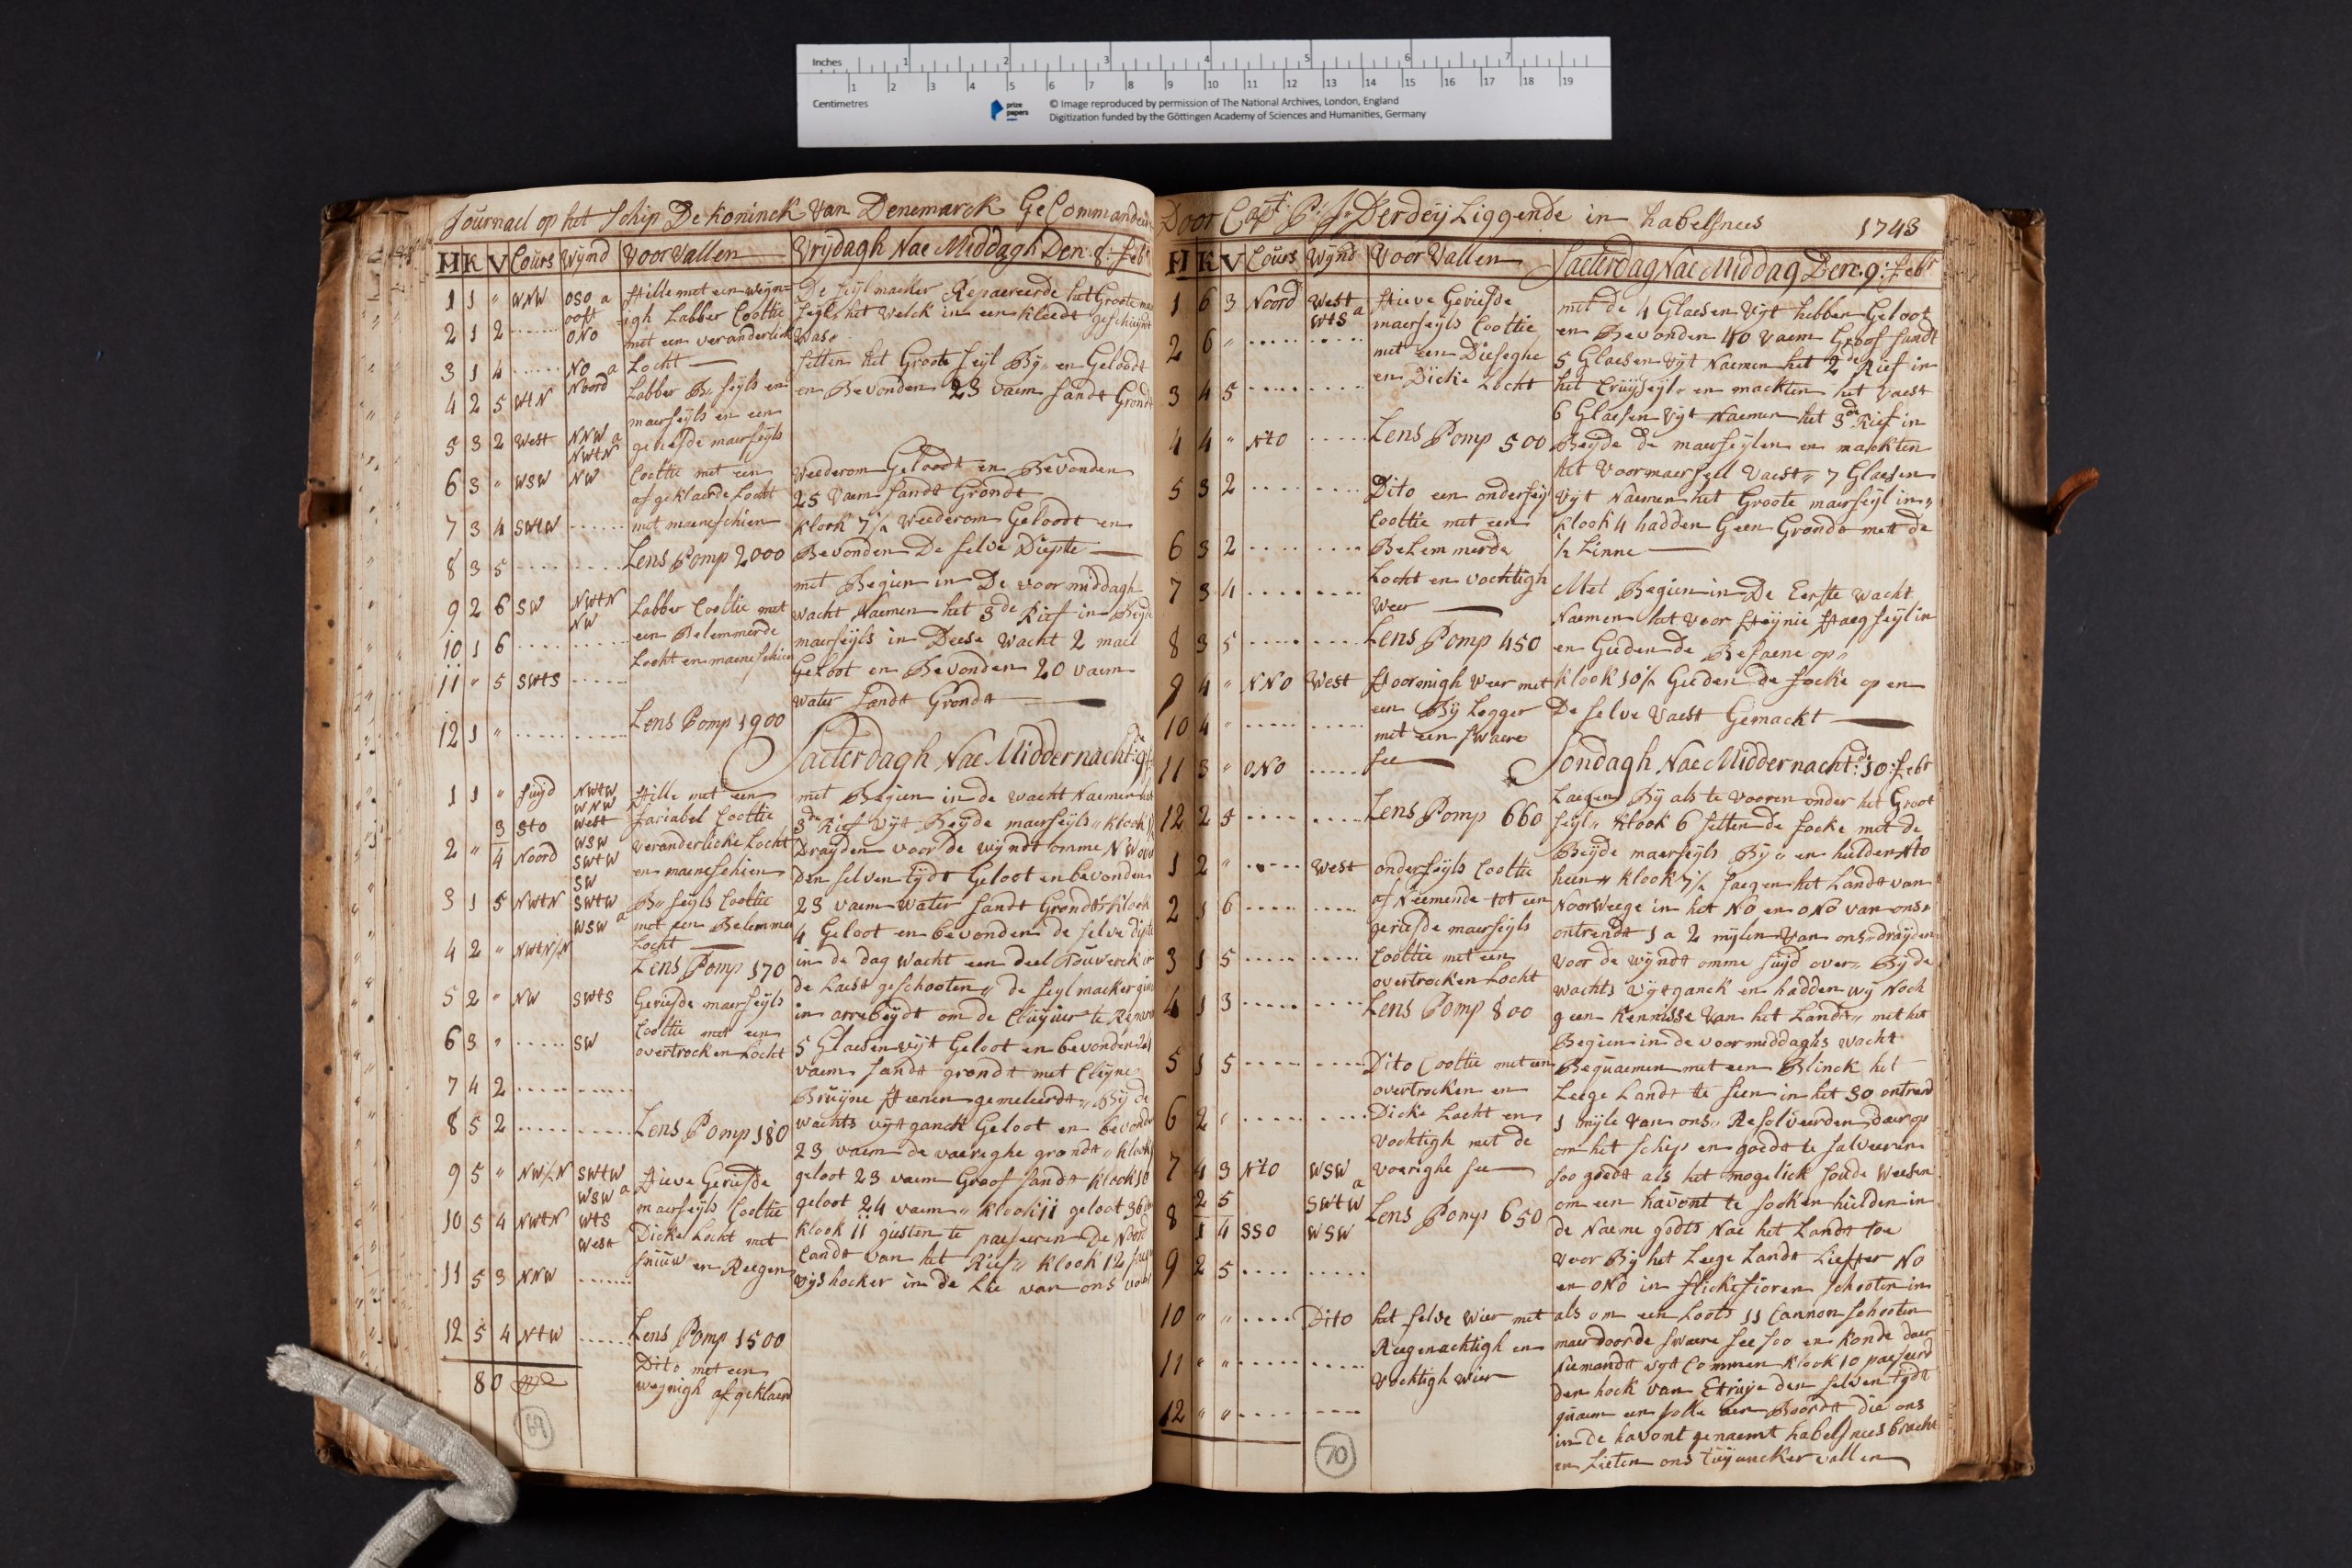 Inches 1 2 3 4 5 6 7
1 2 3 4 5 6 7 8 9 10 11 12 13 14 15 16 17 18 19
Centimetres
prize papers
© Image reproduced by permission of The National Archives, London, England
Digitization funded by the Göttingen Academy of Sciences and Humanities, Germany
Journael op het Schip De Koninck Van Denemarck GeCommandeert
H K V Cours Wynd Voor Vallen Vrydagh Nae Middagh Den: 8: Febr
1 1 " WNW OSO a oost
2 1 2 ONO
3 1 4 NO a Noord
4 2 5 WtN
5 3 2 West NNW a NWtN
6 3 " WSW NW
7 3 4 SWtW
8 3 5
9 2 6 SW NWtN NW
10 1 6
11 " 5 SWtS
12 1 "
Stille met een weyn=
igh Labber Coeltie
met een veranderlick
Locht
Labber B: seyls en
maerseyls en een
geriefde maerseyls
Coeltie met een
afgeklaerde Locht
met maeneschien
Lens Pomp 2000
Labber Coeltie met
een Belemmerde
Locht en maeneschien
Lens Pomp 1900
De seylmaeker Repaereerde het Groote
seyl, het Welck in een kleedt geschuynt
Was
setten het Groote seyl By en Geloodt
en Bevonden 23 vaem sandt Grondt
Weederom Geloodt en Bevonden
25 Vaem sandt Grondt
klook 7½ Weederom Geloodt en
Bevonden De selve Diepte
met Begien in De voor middagh
wacht Naemen het 3de Rief in Beyde
maerseyls in Deese Wacht 2 mael
Geloot en Bevonden 20 vaem
water sandt Grondt
Saeterdagh Nae Middernacht: 9
1 1 " Suyd NWtW WNW
3 Sto West
2 " 4 Noord WSW SWtW SW
3 1 5 NWtN SWtW WSW a
4 2 " NWtN½N
5 2 " NW SWtS
6 3 " SW
7 4 2
8 5 2
9 5 " NW½N SWtW WSW a
10 5 4 NWtN WtS West
11 5 3 NNW
12 5 4 NtW
80
Stille met een
fariabel Coeltie
veranderlicke Locht
en maeneschien
B: seyls Coeltie
met een Belemmer
Locht
Lens Pomp 170
Geriefde maerseyls
Coeltie met een
overtrocken Locht
Lens Pomp 180
Stieve Geriefde
maerseyls Coeltie
Dicke Locht met
snuuw en Reegen
Lens Pomp 1500
Dito met een
weynigh afgeklaer
met Begien in de wacht Naemen het
3de Rief uyt Beyde maerseyls klook
Drayden voor de wyndt omme NW over
Den selven tydt Geloot en bevonden
23 vaem water sandt Grondt klook
4 Geloot en bevonden de selve diepte
in de dag wacht een deel Touwerck in
de Laest geschooten de seylmacker ginck
in arrebeydt om de Cluyver te
5 Glaesen uyt Geloot en bevonden
vaem sandt grondt met Cleyne
Bruyne steenen gemeleerdt By de
wachts uytganck Geloot en bevonden
23 vaem de voereghe grondt klook
geloot 23 vaem Groof sandt klook 10
geloot 24 vaem klook 11 geloot 36
klook 11 gisten te paeseeren De Noord
Candt van het Rief klook 12
Vyshocker in de Lie van ons
69
Door Capt: P: Jr Derdeij Liggende in habelsnees 1743
H K V Cours Wynd Voor Vallen Saeterdag Nae Middag Den: 9: Febr
1 6 3 Noord West a WtS
2 6 "
3 4 5
4 4 " Nto
5 3 2
6 3 2
7 3 4
8 3 5
9 4 " NNO West
10 4 "
11 3 " ONO
12 2 5
Stieve Geriefde
maerseyls Coeltie
met een Dieseghe
en Dicke Locht
Lens Pomp 500
Dito een onderseyl
Coeltie met een
Belemmerde
Locht en vochtigh
Weer
Lens Pomp 450
Stoormigh Weer met
een By Legger
met een swaere
see
Lens Pomp 660
met de 4 Glaesen Uyt hebben Geloot
en Bevonden 40 vaem Groof sandt
5 Glaesen Uyt Naemen het 2de Rief in
het Cruysseyl en mackten het Vaest
6 Glaesen Uyt Naemen het 3de Rief in
Beyde de maerseylen en mackten
het Voormaerseyl Vaest 7 Glaesen
Uyt Naemen het Groote maerseyl in
klook 4 hadden Geen Grondt mett de
½ Linne
Met Begien in De Eerste Wacht
Naemen het voor Steynie Staegseyl in
en Gieden de Besaene op
klook 10½ Gieden de focke op en
De selve Vaest Gemackt
Sondagh Nae Middernacht: de 10: Febr
1 2 " West
2 1 6
3 1 5
4 1 3
5 1 5
6 2 "
7 4 3 Nto WSW a
8 2 5 SWtW
1 4 SSO WSW
9 2 5
10 " " Dito
11 " "
12 " "
onderseyls Coeltie
af Neemende tot een
geriefde maerseyls
Coeltie met een
overtrocken Locht
Lens Pomp 800
Dito Coeltie met een
overtrocken en
Dicke Locht en
Vochtigh met de
voerighe see
Lens Pomp 650
het selve Wier met
Reegenachtigh en
Vochtigh wier
Laegen By als te vooren onder het Groot
seyl klook 6 setten de focke met de
Beyde maerseyls By en hielden Nto
heen klook 7½ saegen het Landt van
Noorweege in het NO en ONO van ons
ontrendt 1 a 2 mylen Van ons drayden
voor de wyndt omme suyd over By de
wachts uytganck en hadden wy Noch
geen kennisse van het Landt met het
Begien in de voormiddaghs wacht
Bequaemen met een Blinck het
Leege Landt te sien in het SO ontrend
1 myle van ons Resolveerden daerop
om het schip en goedt te salveeren
soo goedt als het mogelick soude Weesen
om een havent te soeken hielden in
de Naeme godts Nae het Landt toe
voor By het Leege Landt NO
en ONO in schooten in
als om een Loots 11 Cannon schooten
maer door de swaere see soo en konde daer
niemandt uyt Commen klook 10 paeseerd
den hock van den selven tydt
quaem een Jolle aen Boordt die ons
in de havent genaemt habelsnees bracht
en Lieten ons tuyancker vallen
70